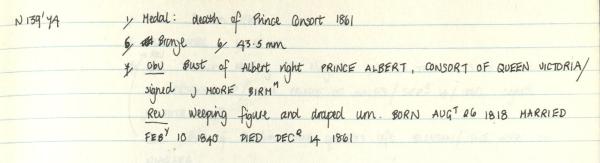 N139'74 1, Medal: death of Prince Consort 1861
5, Bronze 6, 43.5 mm
7, Obv Bust of Albert right PRINCE ALBERT, CONSORT OF QUEEN VICTORIA/
signed J MOORE BIRMᴹ
Rev Weeping figure and draped urn. BORN AUGᵀ 26 1818 MARRIED
FEBʸ 10 1840 DIED DECᴿ 14 1861